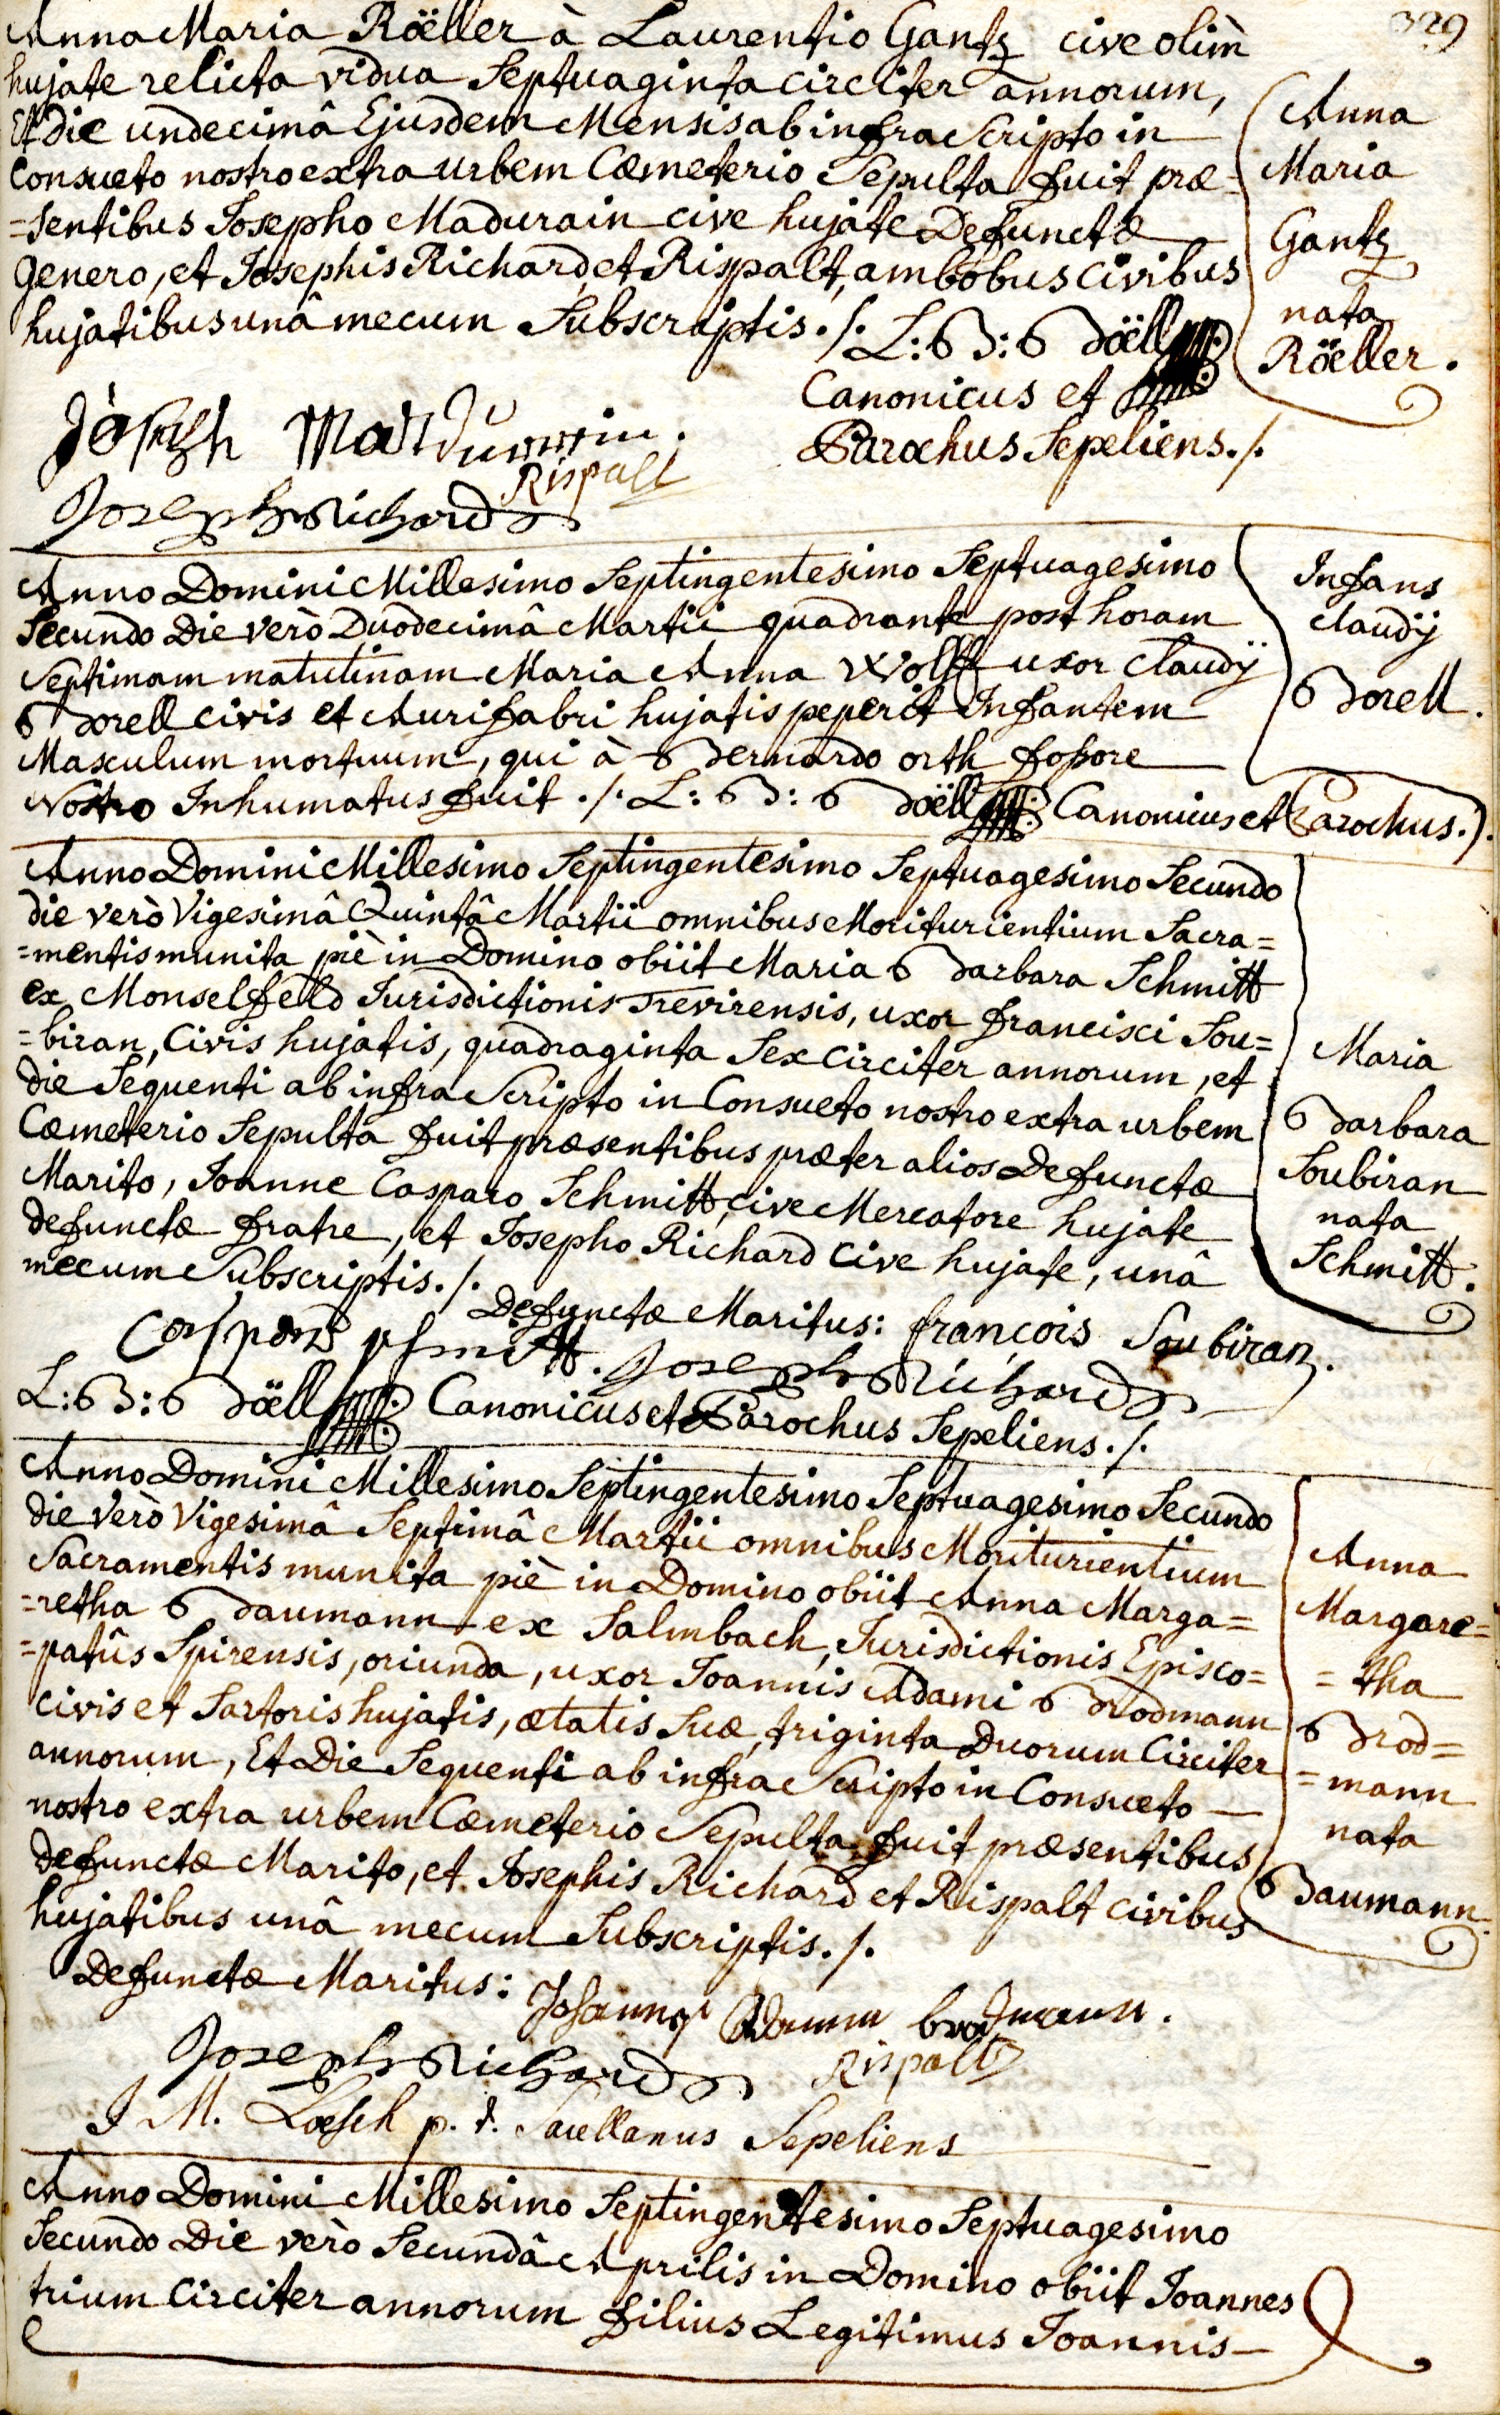 329
Anna Maria Röeller à Laurentio Gantz cive olim
hujate relicta vidua Septuaginta circiter annorum,
Et die undecimâ Ejusdem Mensis ab infra Scripto in
Consueto nostro extra urbem Cœmeterio Sepulta fuit præ=
=sentibus Josepho Madurain cive hujate Defunctæ
Genero, et Josephis Richard, et Rispalt, ambobus civibus
hujatibus unâ mecum Subscriptis ./.
Anna
Maria
Gantz
nata
Röeller.
L: B: Böell
Canonicus et
Parochus Sepeliens ./.
Joseph Madurain.
Rispalt
Joseph Richard
Anno Domini Millesimo Septingentesimo Septuagesimo
Secundo Die verò Duodecimâ Martii quadrante post horam
Septimam matutinam Maria Anna Wolff uxor Claudÿ
Borell civis et Aurifabri hujatis peperit Infantem
Masculum mortuum, qui à Bernardo orth fossore
Nostro Inhumatus fuit ./. L: B: Böell Canonicus et Parochus ./.
Infans
Claudÿ
Borell.
Anno Domini Millesimo Septingentesimo Septuagesimo Secundo
die verò Vigesimâ Quintâ Martii omnibus Moriturientium Sacra=
=mentis munita piè in Domino obiit Maria Barbara Schmitt
ex Monselfeld Jurisdictionis Trevirensis, uxor francisci Sou=
=biran, Civis hujatis, quadraginta Sex circiter annorum, et
die Sequenti ab infra Scripto in Consueto nostro extra urbem
Cœmeterio Sepulta fuit præsentibus præter alios Defunctæ
Marito, Joanne Casparo Schmitt, cive Mercatore hujate
defunctæ fratre, et Josepho Richard cive hujate, unâ
mecum Subscriptis ./.
Maria
Barbara
Soubiran
nata
Schmitt.
Defunctæ Maritus: françois Soubiran.
Joseph Richard
L: B: Böell Canonicus et Parochus Sepeliens ./.
Anno Domini Millesimo Septingentesimo Septuagesimo Secundo
die verò Vigesimâ Septimâ Martii omnibus Moriturientium
Sacramentis munita piè in Domino obiit Anna Marga=
=retha Baumann ex Salmbach, Jurisdictionis Episco=
=patûs Spirensis, oriunda, uxor Joannis Adami Brodmann
civis et Sartoris hujatis, ætatis Suæ, triginta Duorum Circiter
annorum, Et Die Sequenti ab infra Scripto in Consueto
nostro extra urbem Cœmeterio Sepulta fuit præsentibus
defunctæ Marito, et Josephis Richard et Rispalt civibus
hujatibus unâ mecum Subscriptis ./.
Anna
Margare=
=tha
Brod=
=mann
nata
Baumann
Defunctæ Maritus: Johannes Adamm brodmann.
Joseph Richard Rispalt
J M. Loesch p. t. Sacellanus Sepeliens
Anno Domini Millesimo Septingentesimo Septuagesimo
Secundo Die verò Secundâ Aprilis in Domino obiit Joannes
trium Circiter annorum filius Legitimus Joannis